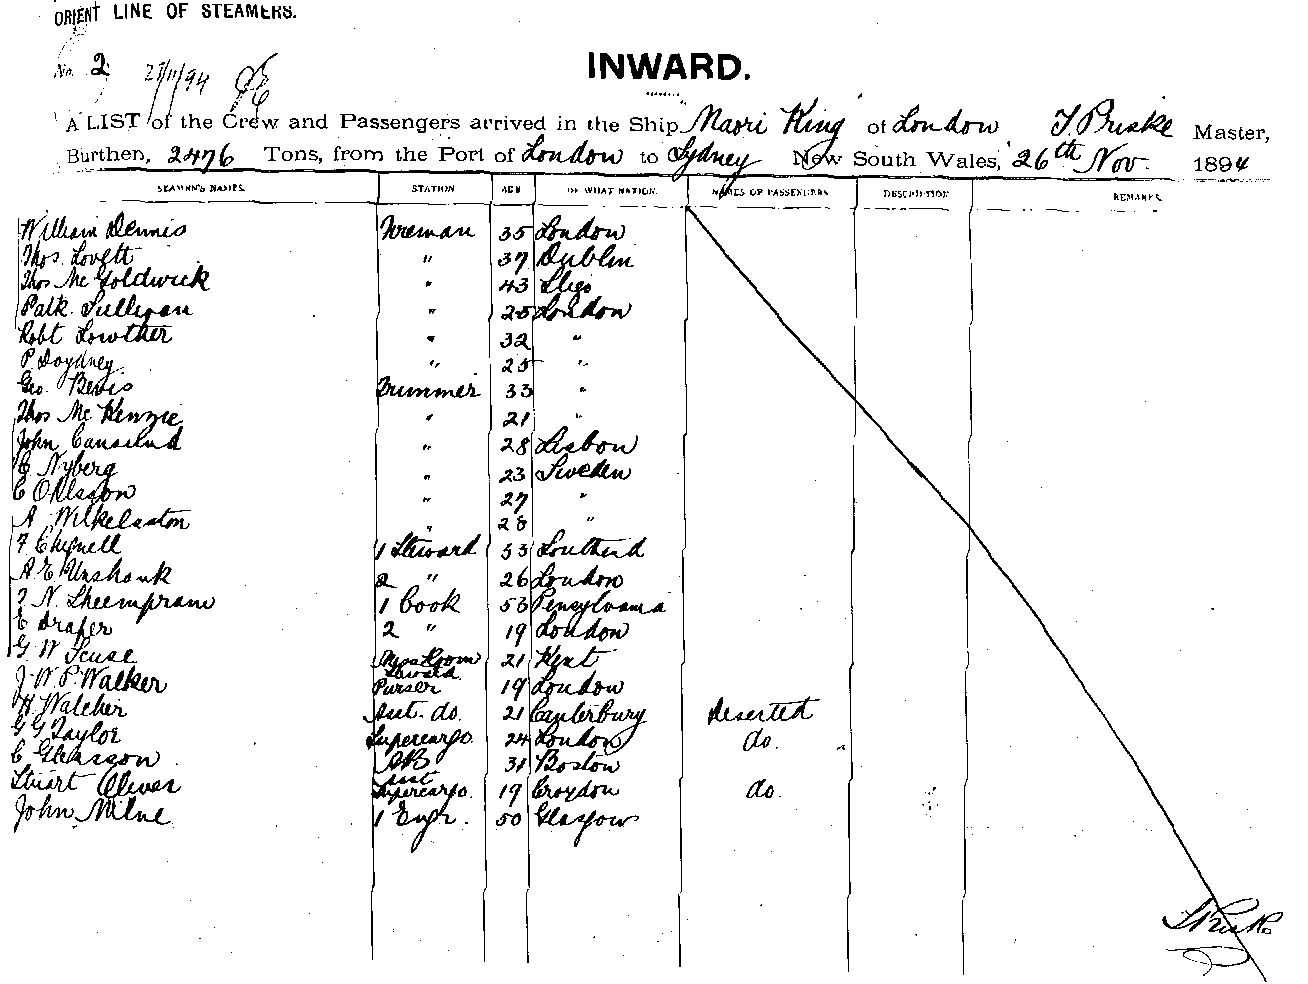 ORIENT LINE OF STEAMERS.
No. 2 27/11/94
INWARD.
A LIST of the Crew and Passengers arrived in the Ship Maori King of London T. Briske Master,
Burthen, 2476 Tons, from the Port of London to Sydney New South Wales, 26th Nov. 1894
SEAMEN'S NAMES. STATION AGE OF WHAT NATION. NAMES OF PASSENGERS DESCRIPTION REMARKS.
William Dennis Fireman 35 London
Thos. Lovett " 37 Dublin
Thos Mc Goldwick " 43 Sligo
Patk. Sullivan " 25 London
Robt Lowther " 32 "
P " 25 "
Geo. Bevis Trimmer 33 "
Thos Mc Kenzie " 21 "
John " 28 Lisbon
C Nyberg " 23 Sweden
C Ohlsson " 27 "
A " 28 "
F Chignell 1 Steward 33 Southend
A. E. 2 " 26 London
N. 1 Cook 53 Pensylvania
E Draper 2 " 19 London
G. W Mess Room Steward 21 Kent
J. W. P. Walker Purser 19 London
H Asst. do. 21 Canterbury Deserted
G G Taylor Supercargo. 24 London do.
C AB 31 Boston
Stuart Oliver Asst Supercargo. 19 Croydon do.
John Milne 1 Engr. 50 Glasgow